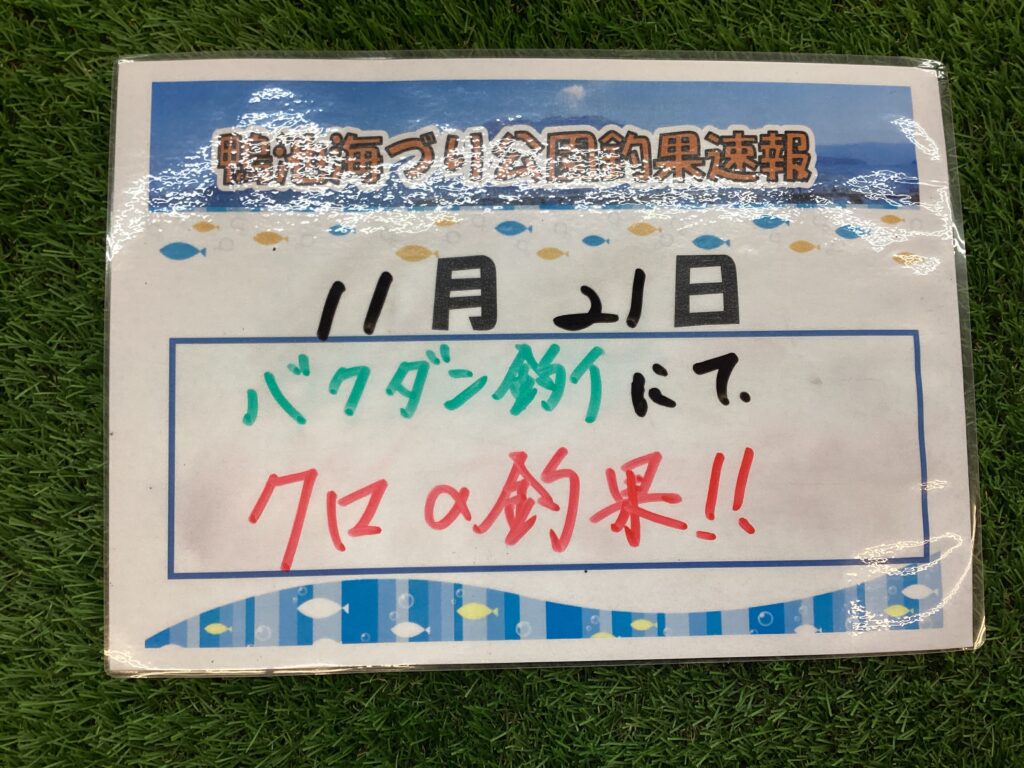 鴨池海づり公園釣果速報
11月 21日
バクダン釣イにて.
クロの釣果!!